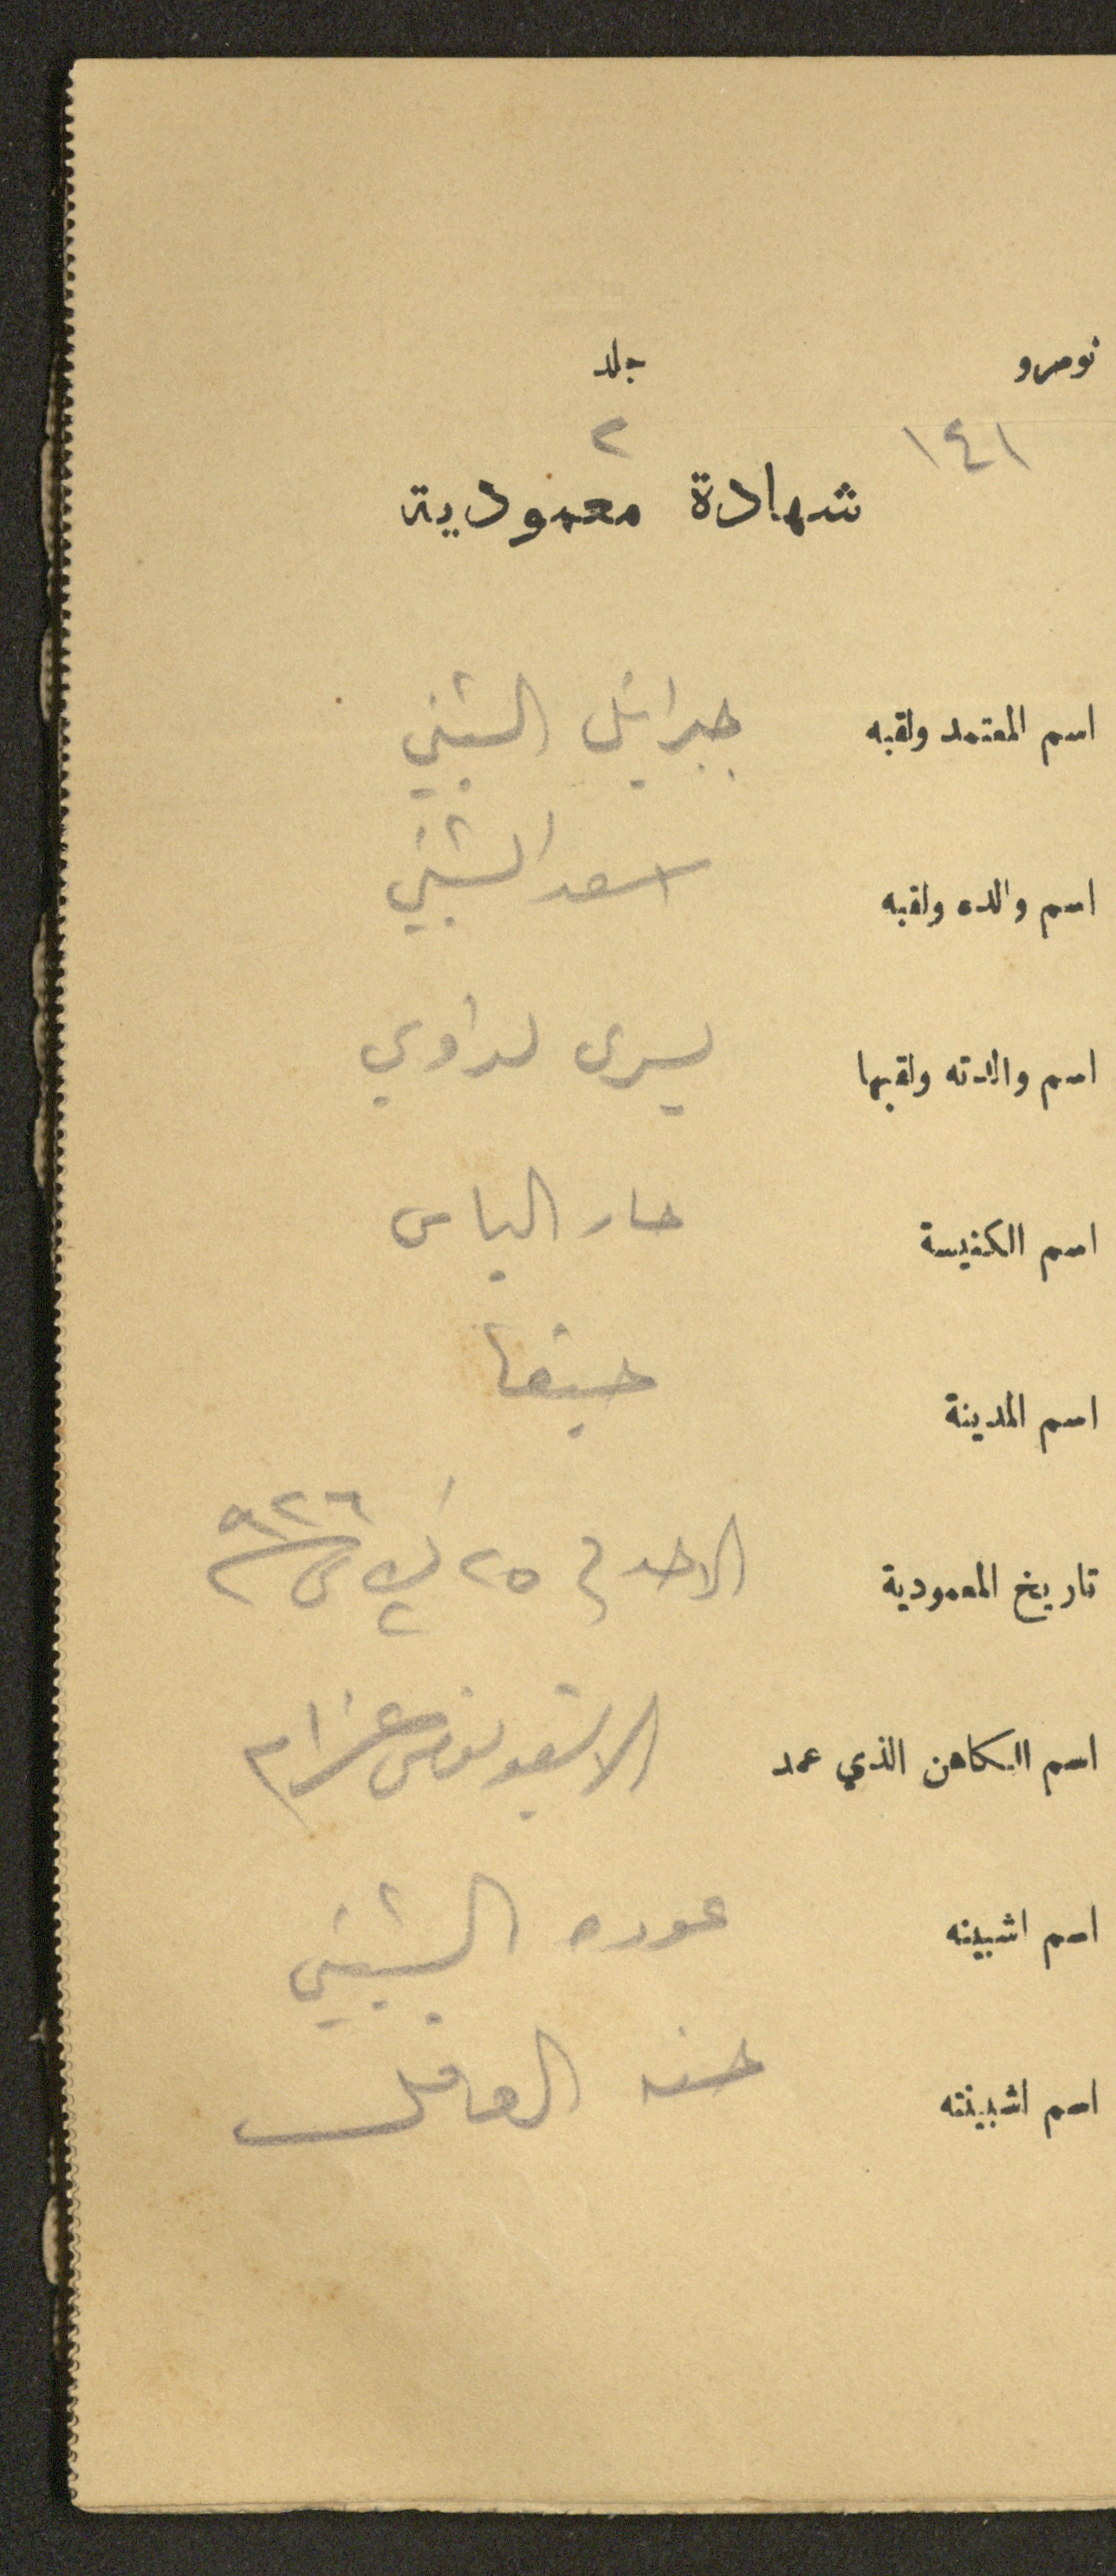 نومرو جلد
١٤١ ٢
شهادة معمودية
اسم المعتمد ولقبه جبرائيل الشبيني
اسم والده ولقبه اسعد الشبيني
اسم والدته ولقبها يسرى لداوي
اسم الكنيسة مار الياس
اسم المدينة حيفا
تاريخ المعمودية الاحد في ٢٥ ك٢ سنة ٩٢٦
اسم الكاهن الذي عمد عزام
اسم اشبينه عوده الشبيني
اسم اشبينته حنه